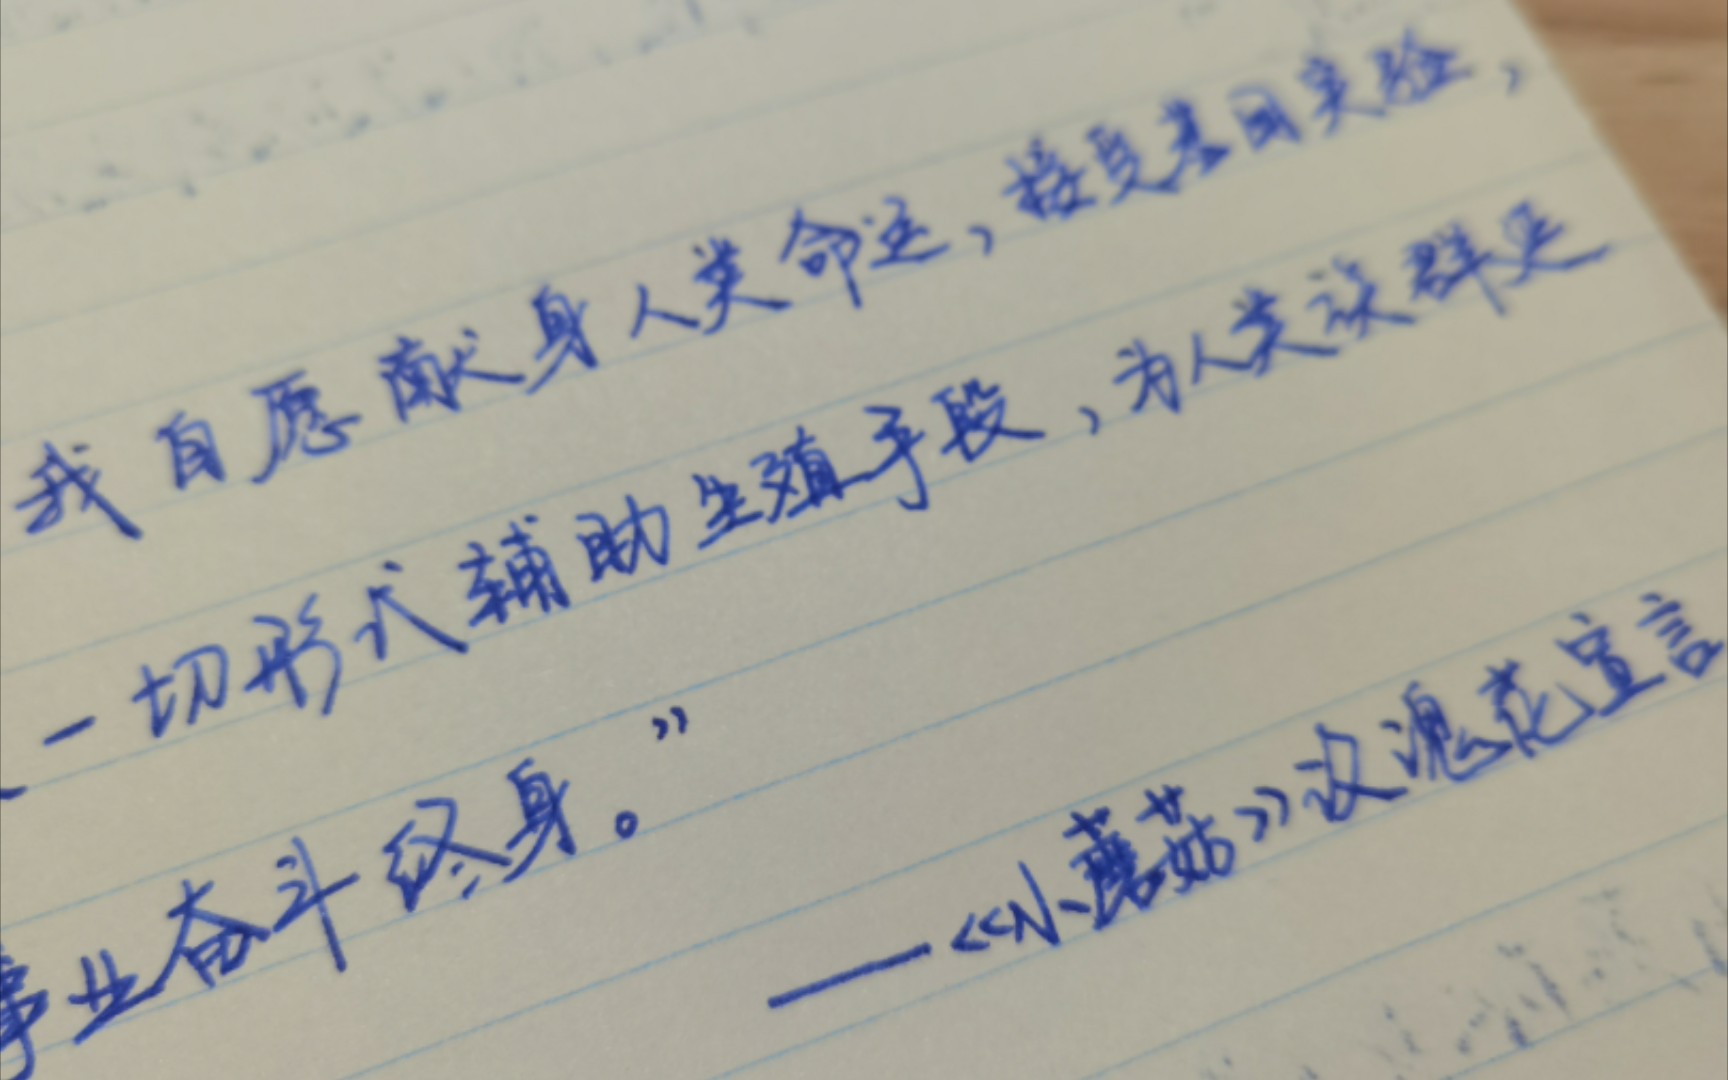 我自愿献身人类命运，接受基因实验，
一切形式辅助生殖手段，为人类族群延
事业奋斗终身。”
——《小蘑菇》玫瑰花宣言